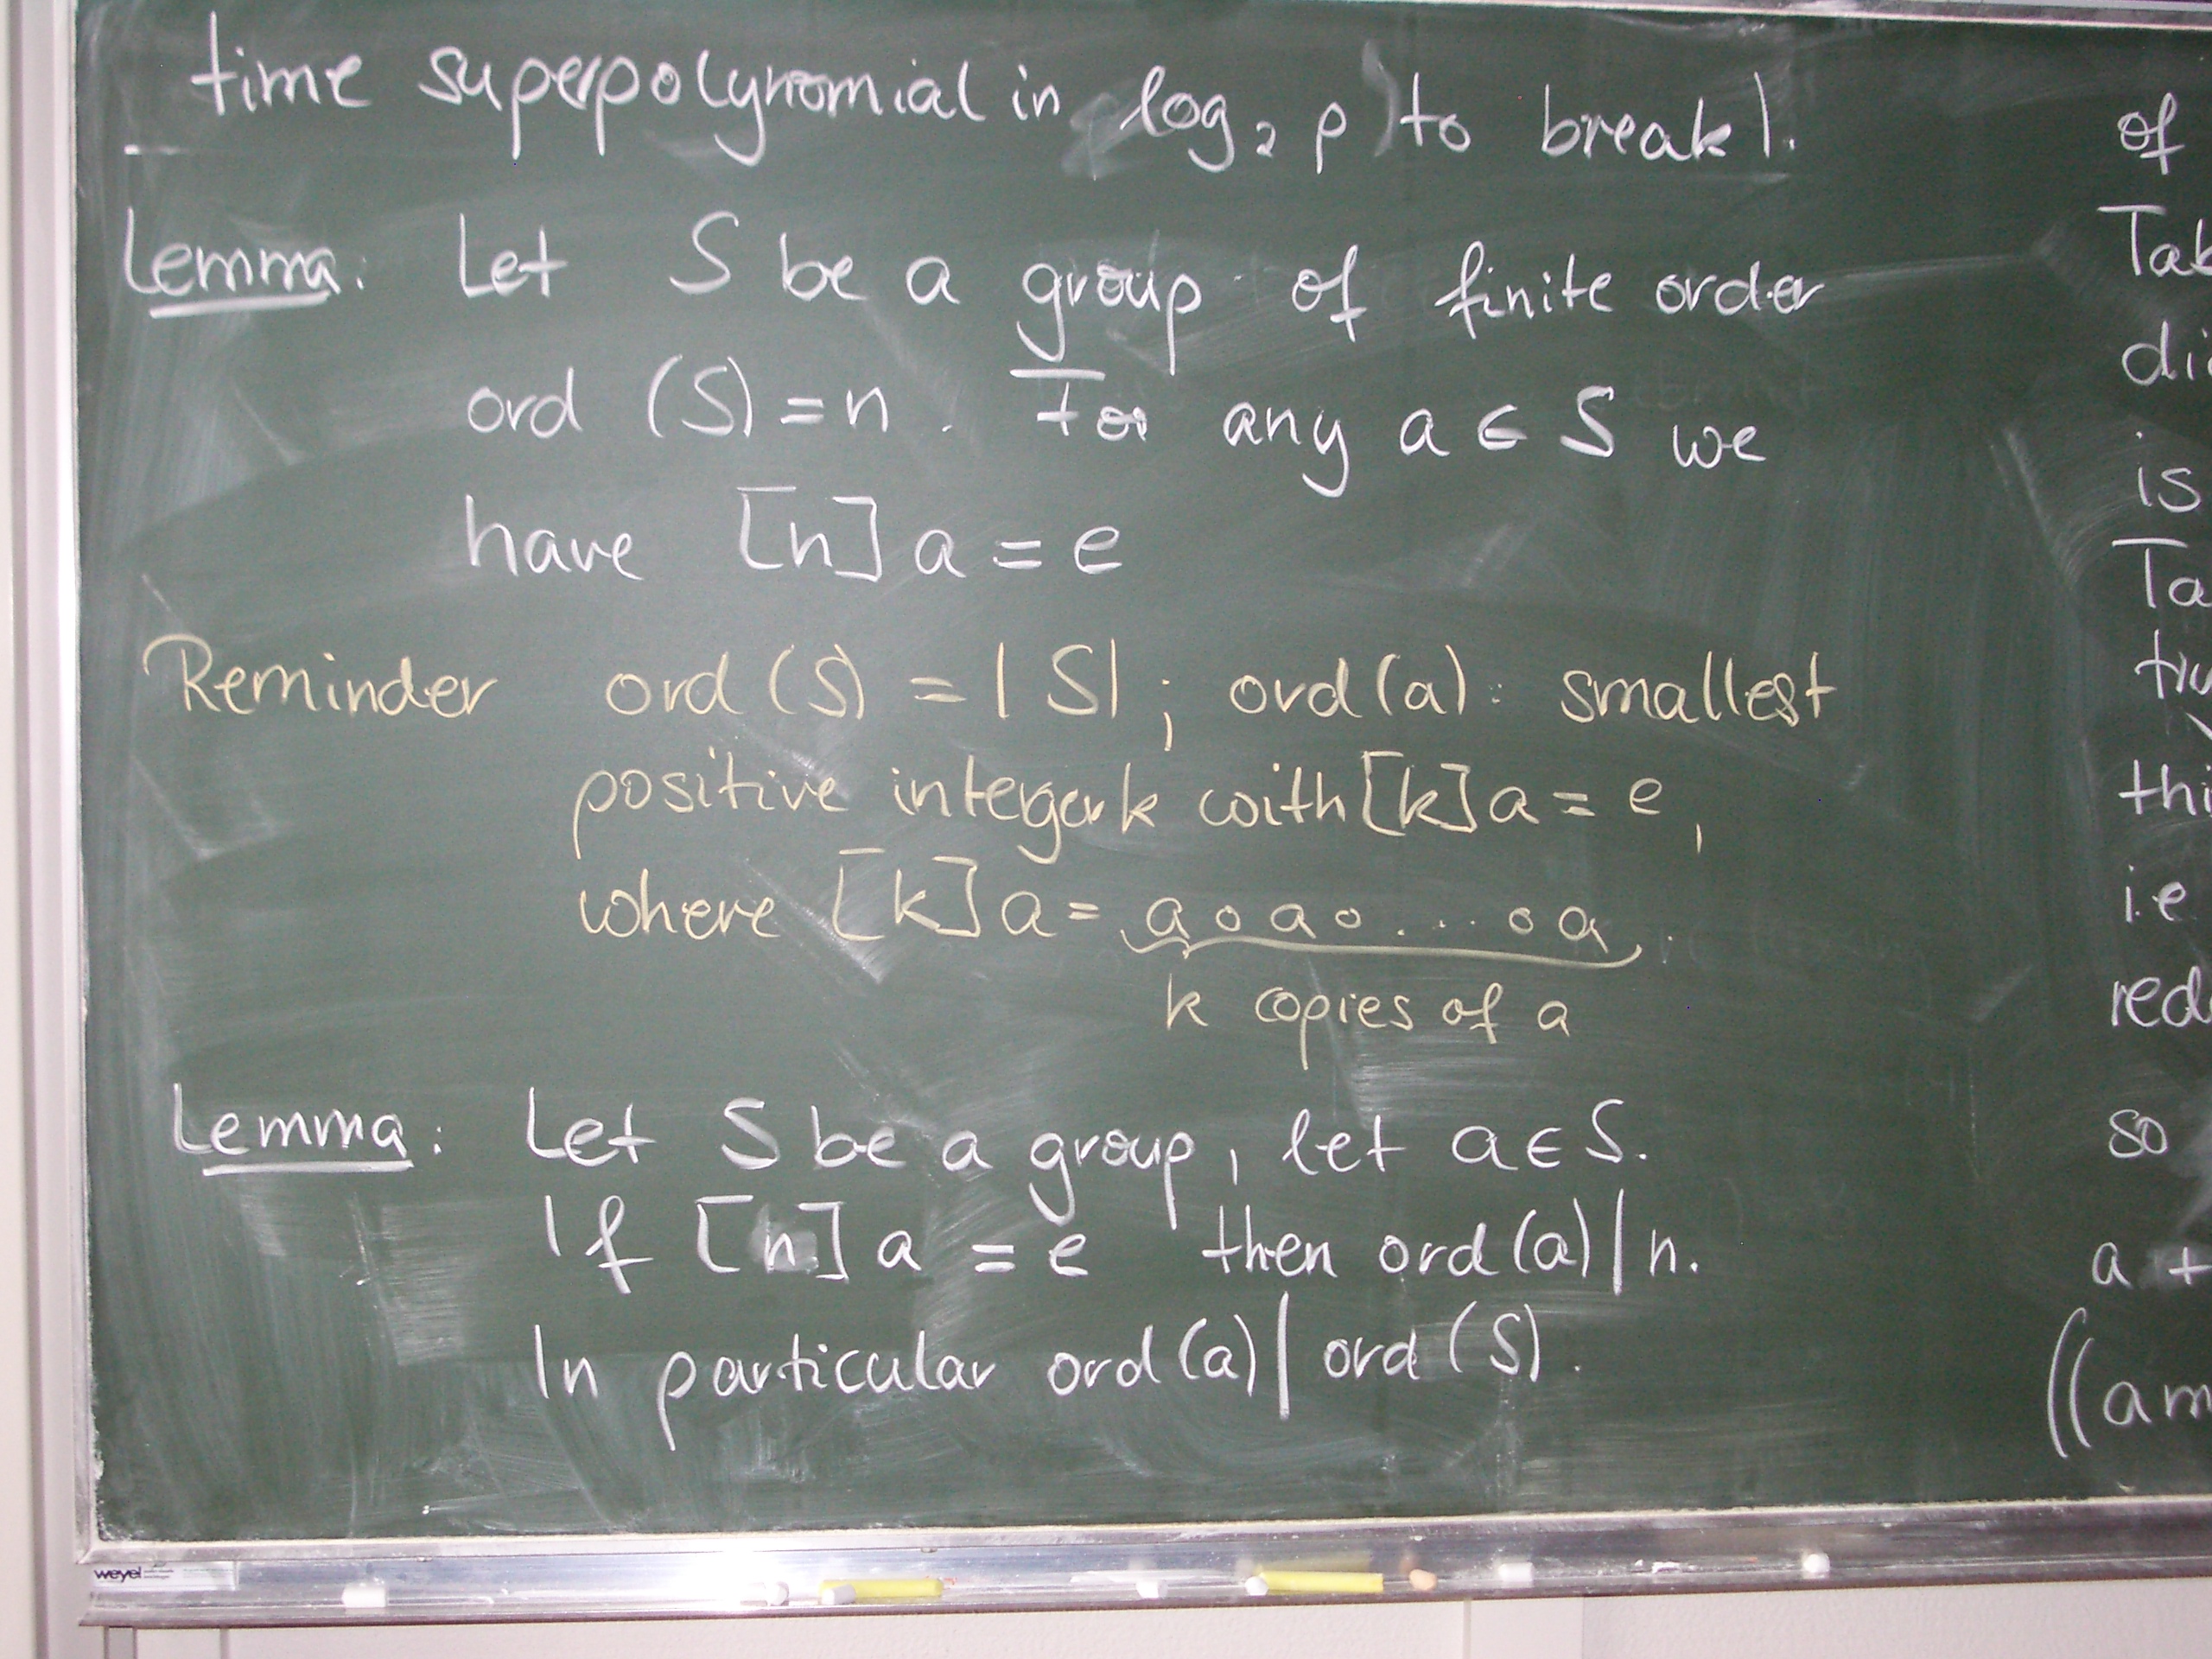 time superpolynomial in log₂ p) to break).
Lemma: Let S be a group of finite order
ord (S) = n. For any a ∈ S we
have [n] a = e
Reminder ord (S) = |S| ; ord(a): smallest
positive integer k with [k] a = e,
where [k] a = a ∘ a ∘ ... ∘ a.
k copies of a
Lemma: Let S be a group, let a ∈ S.
If [n] a = e then ord(a) | n.
In particular ord(a) | ord (S).
of
is
i.e
so
a +
((am
weyel